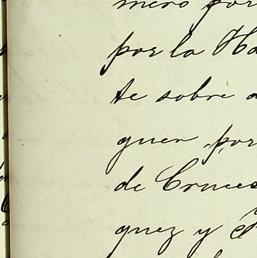 mero por
por la Ha
te sobre a
quen por
de Cruces
quez y